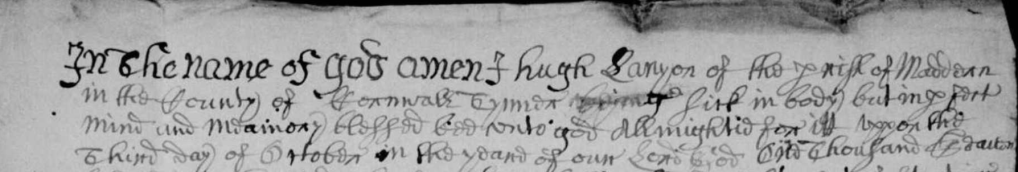 In the name of god amen I hugh Lanyon of the prish of Maddern
in the County of Cornwall Tynner being sick in body but in pfect
mind and Meamory blessed bee vnto god Allmightie for itt vppon the
Third day of October in the yeare of our Lord god One Thousand